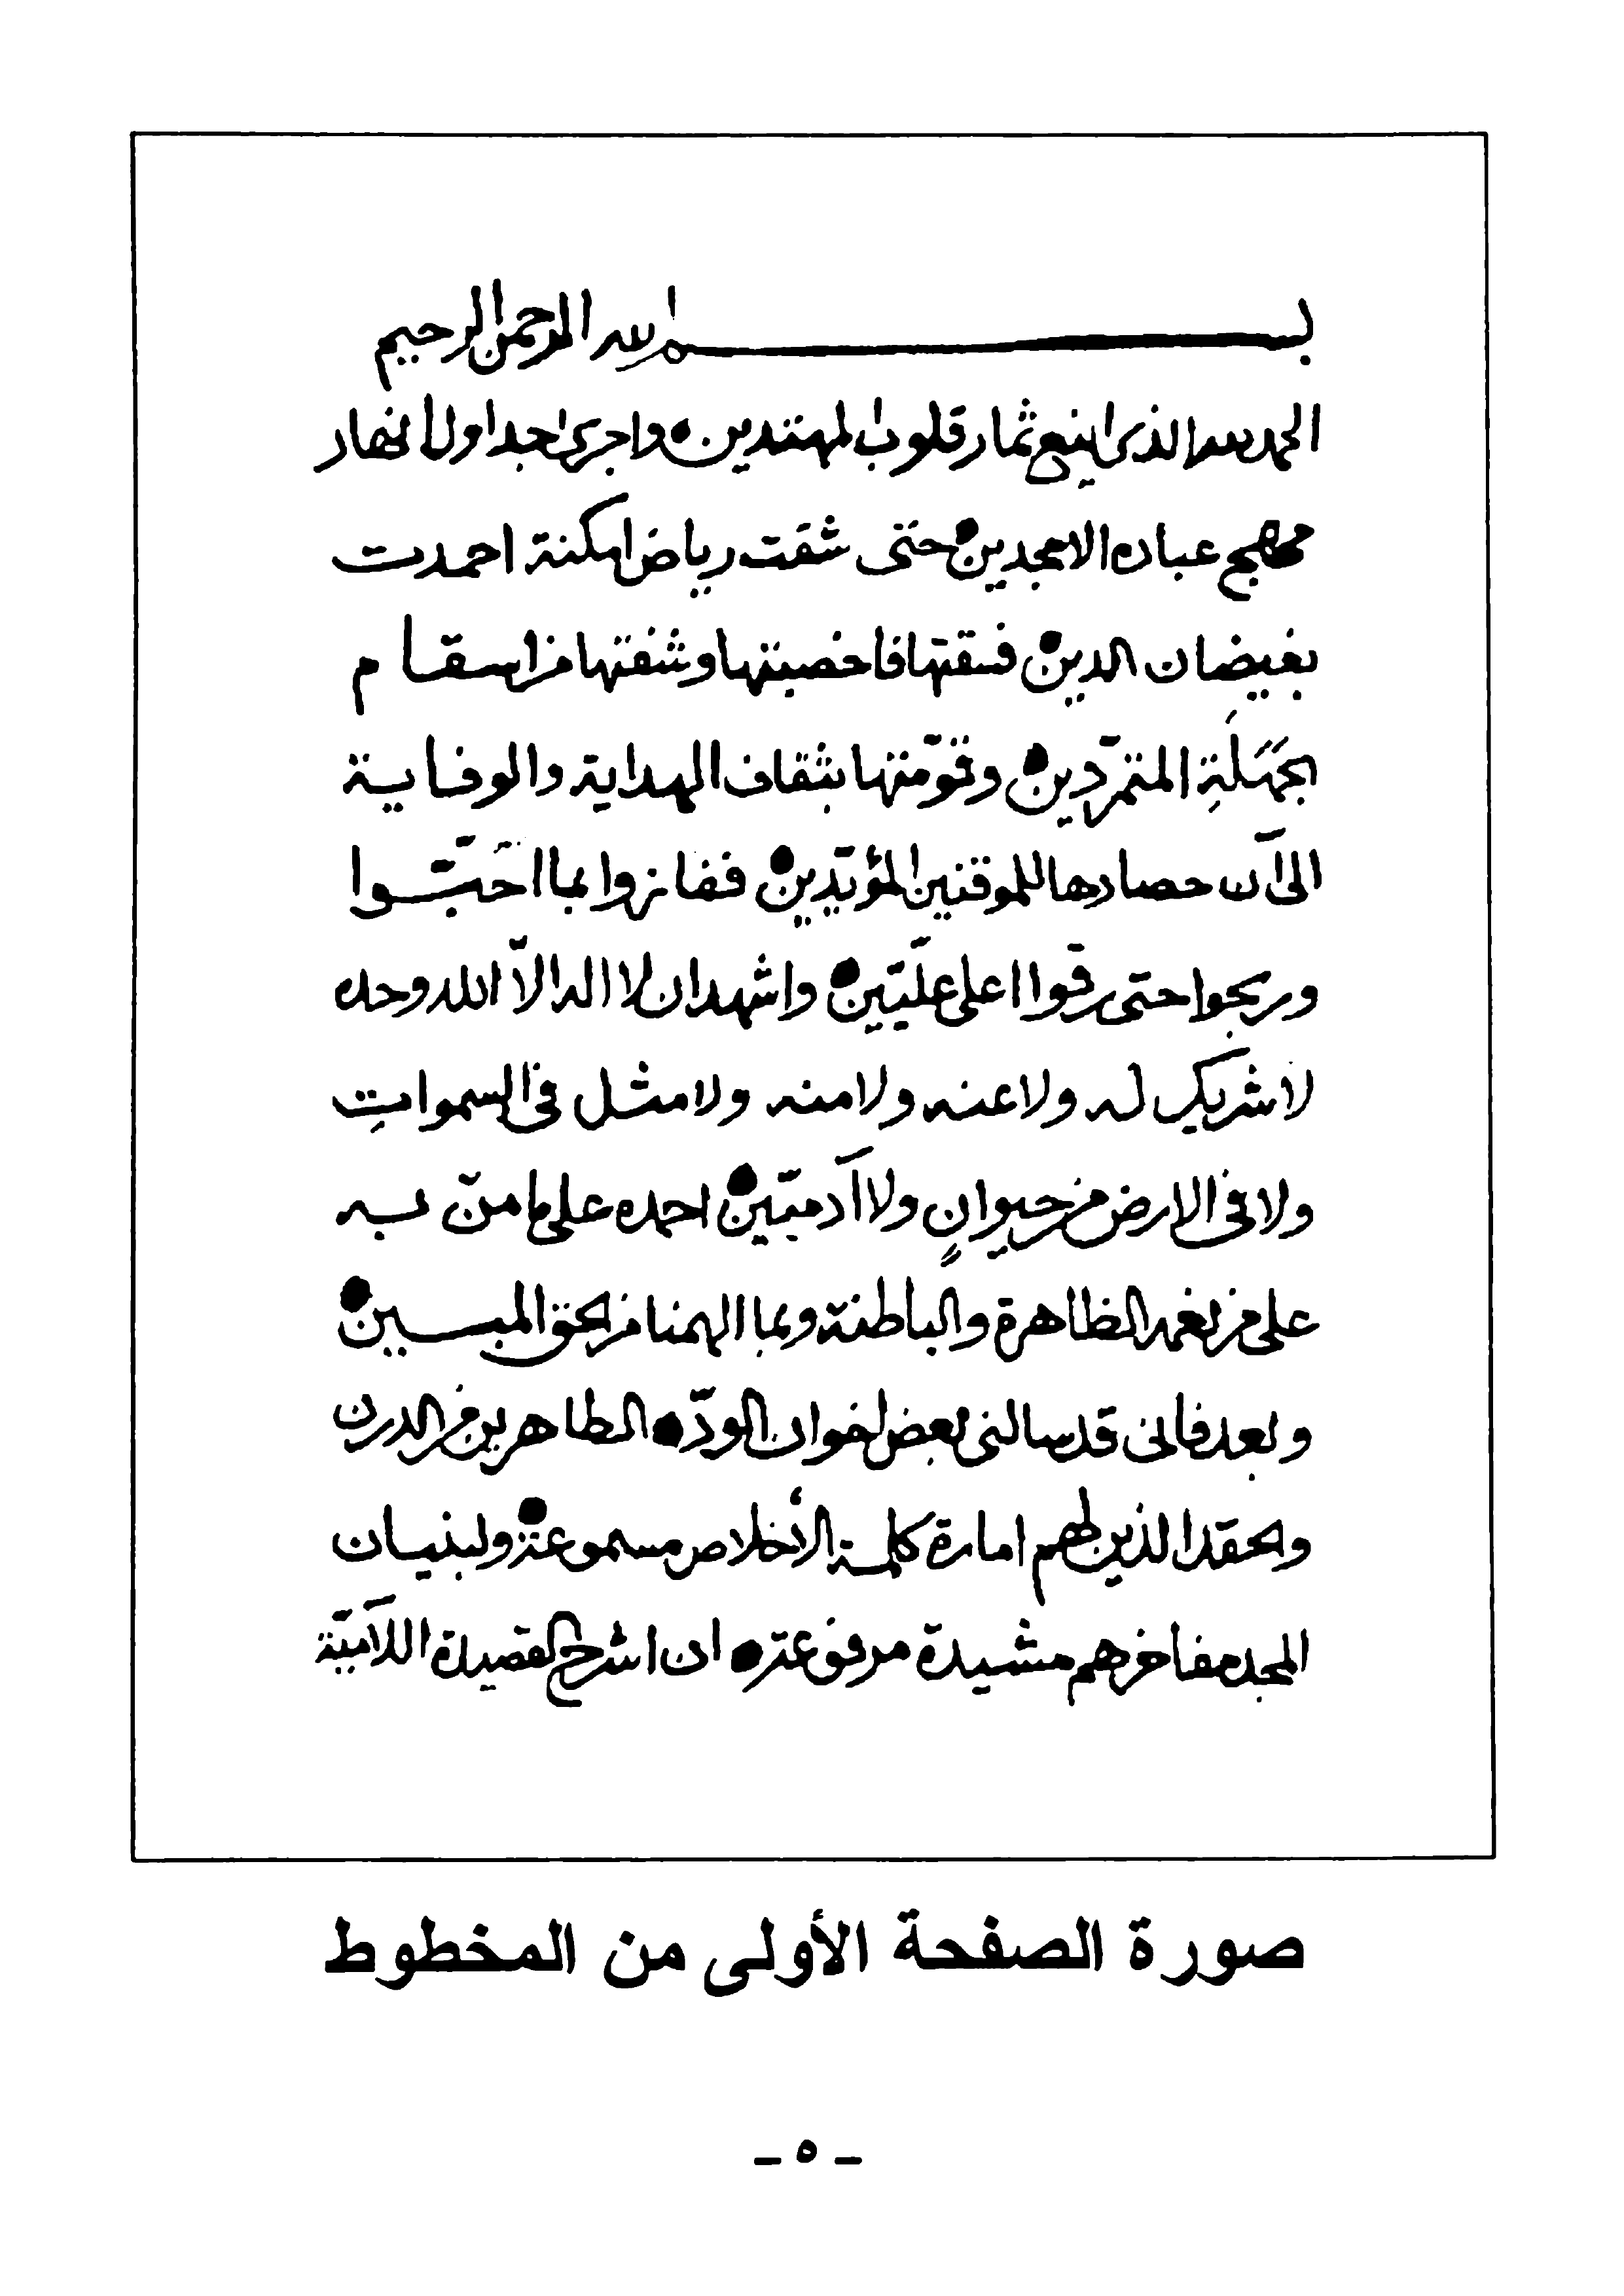 بسم الله الرحمن الرحيم
الحمد لله الذى اينع ثمار قلوب المهتدين واجرى جداول انهار
مهج عباده الامجدين حتى شقت رياض امكنة احمدت
بفيضان الدين فسقتها فاخصبتها وشفتها من اسقام
الجَهَلَةِ المتمرّدين وقوّمتها بثقاف الهداية والوفاية
الى آن حصادها للموقنين المؤيّدين ففازوا بما احَبّوا
وربحوا حتى رقوا اعلى علّيّين واشهد ان لا اله الاّ الله وحده
لا شريك له ولا عنه ولا منه ولا مثل فى السمواتِ
ولا فى الارض من حيوانٍ ولا آدميّين احمده على ما منّ به
على من نعمه الظاهرة والباطنة وبما الهمنا من الحق المبين
وبعد فانى قد سالنى بعض اخوان الودّ الطاهرين من الدرن
والحقد الذين لهم امارة كلمة الأخلاص مسموعة ولبنيان
المجد مفاخرهم مشيدة مرفوعة ان اشرح القصيدة اللاّميّة
صورة الصفحة الأولى من المخطوط
- ٥ -